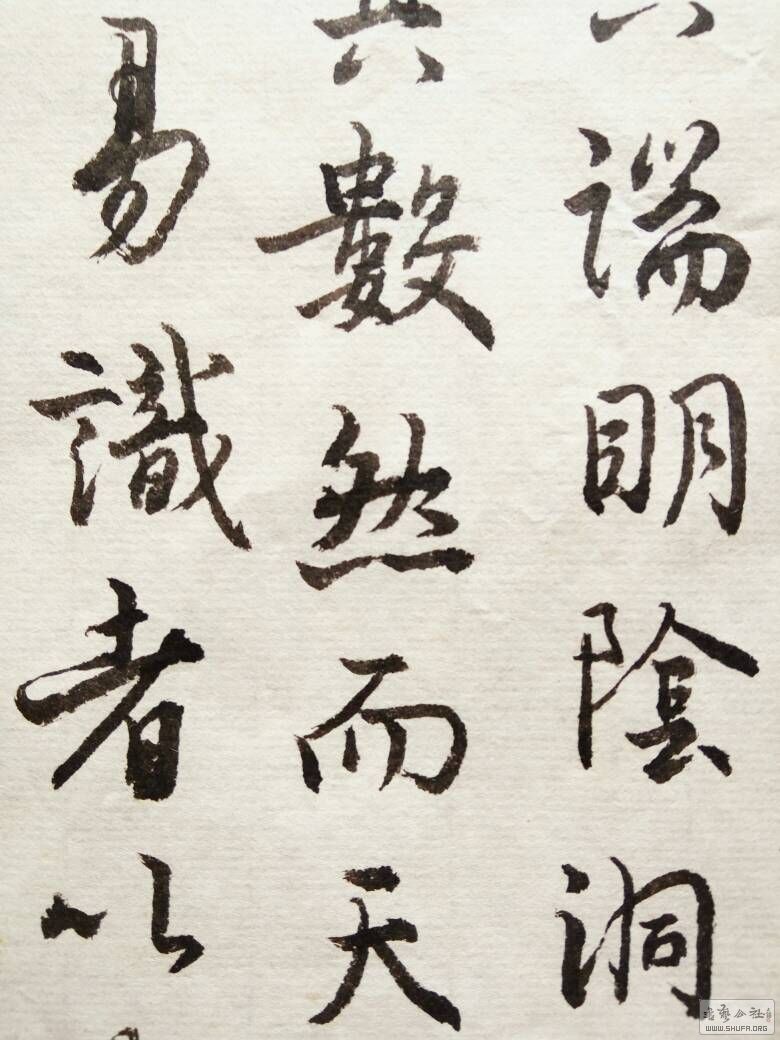 端明陰洞
其數然而天
易識者以
书艺公社
WWW.SHUFA.ORG